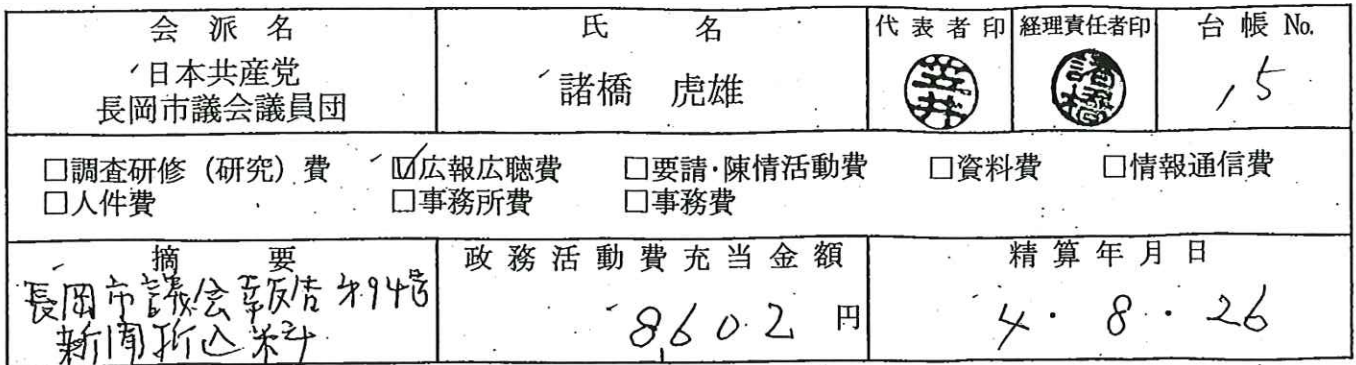 会派名 氏名 代表者印 経理責任者印 台帳No.
日本共産党
長岡市議会議員団 諸橋 虎雄 笠井 諸橋 15
□調査研修（研究）費 ☑広報広聴費 □要請・陳情活動費 □資料費 □情報通信費
□人件費 □事務所費 □事務費
摘要 政務活動費充当金額 精算年月日
長岡市議会報告 才94号
新聞折込料 8602円 4・8・26